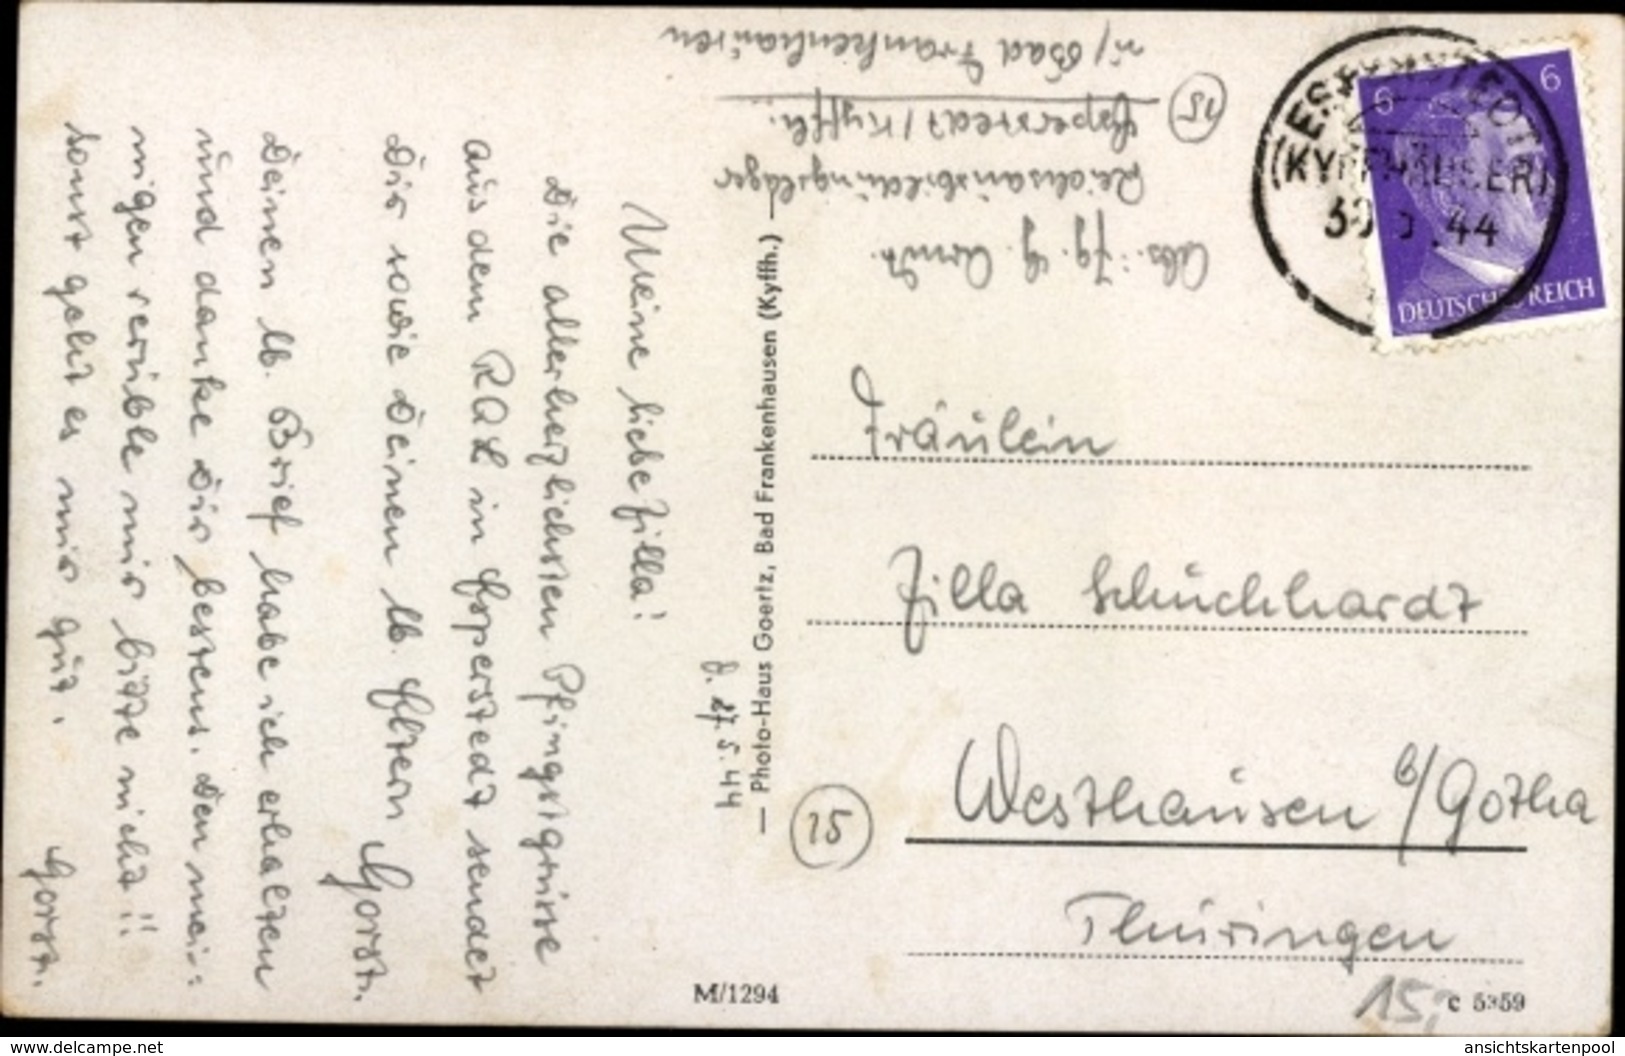 Meine liebe Zilla!
Die allerherzlichsten Pfingstgrüsse
aus dem RAL in Esperstedt sendet
Dir sowie Deinen lb. Eltern Horst.
Deinen lb. Brief habe ich erhalten
und danke Dir bestens. Den mei-
nigen verüble mir bitte nicht!!
Sonst geht es mir gut. Horst.
d. 27.5.44
— Photo-Haus Goertz, Bad Frankenhausen (Kyffh.) —
Abs.: Jg. H. Arndt.
Reichsausbildungslager
(15) Esperstedt/Kyffh.
ü/Bad Frankenhausen
(KYFFHÄUSER)
44
6 6
DEUTSCHES REICH
Fräulein
Zilla Schuchhardt
(15)
Westhausen b/Gotha
Thüringen
M/1294
15,-
c 5359
www.delcampe.net
ansichtskartenpool